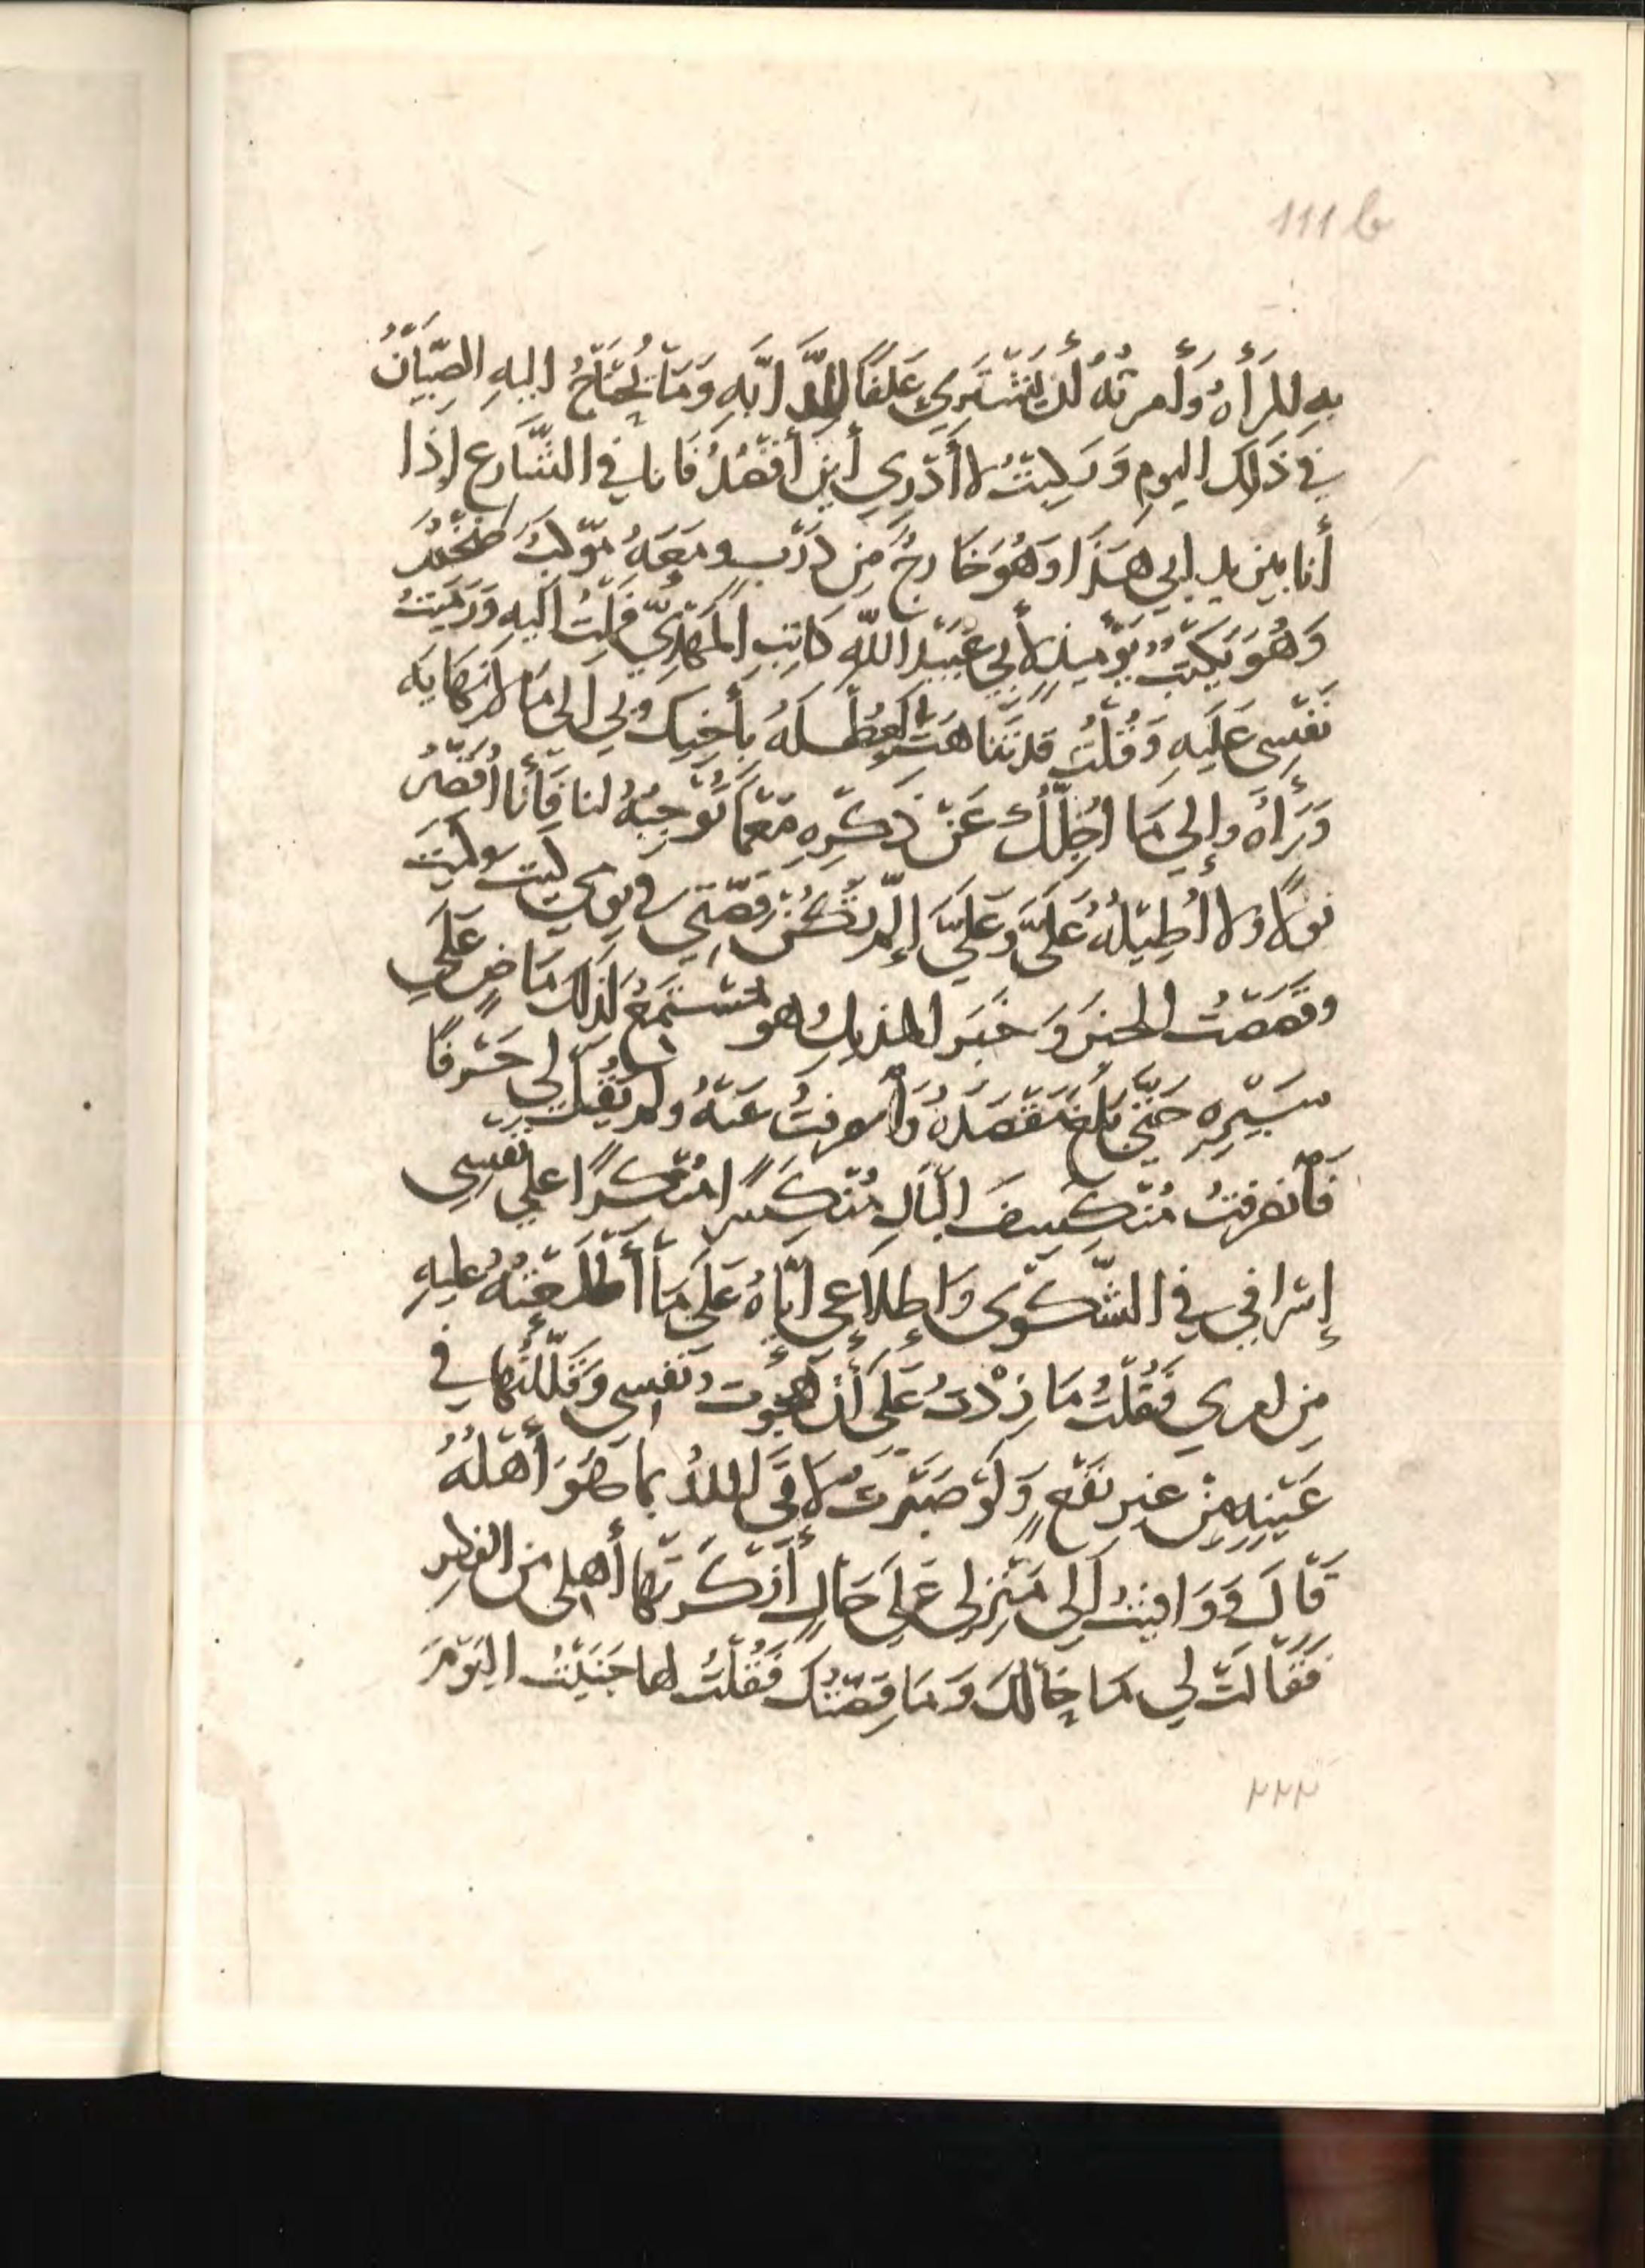 111b
بهِ المرأهُ وَأمرتهُ أن يشْتَرِي عَلَفًا للدَّابَّهِ وَمَا يُحْتَاجُ اليهِ الصِّبْيَانُ
في ذَلِكَ اليوم وَرَكِبْتُ لا أَدْرِي أَين أقْصُدُ فَانا في الشَّارع إذَا
أنا بين يدي ابي هَذَا وَهُوَ خَارِجٌ مِن دَرْبٍ ومَعَهُ مَوْكبٌ ضَخْمٌ
وَهُوَ يَكْتُبُ يَوْمَيذٍ لأَبِي عُبَيْدِ اللَّهِ كَاتِبِ المَهْدِيِّ فَمِلْتُ اليهِ وَرَمَيتُ
نَفْسِي عَلَيهِ وَقُلْتُ قد تَنَاهَتْ العُطْلَهُ بأَخِيكَ وبي الى مَا لا نِهَايَه
وَرَاءَهُ وإلي مَا اجِلُّكَ عَنْ ذِكْرِهِ مَعَمَا تُوْجِبُهُ لنا فَأَنا أُقَصِّرُ
قولاً ولا أُطِيْلُهُ عَلَيَّ وَعَلَيَّ إِن لم تَكُنْ قِصَّتِي في يومي كيت وكيت
وقَصَصْتُ الخبَرَ وَخَبَرَ المنديل وهو مُسْتَمِعٌ لذلك مَاضٍ عَلَى
سَيْرِهِ حَتَّى بَلَغَ مَقْصَدَهُ وَأنصرفتُ عَنْهُ ولم يَقُلْ لي حَرْفًا
فَأنصَرفتُ مُنْكسِفَ البَالِ مُنْكَسِرًا مُنْكِرًا على نفسِي
إسْرَافي في الشَّكْوَى وَإِطلَاعي ايَّاهُ عَلَى مَا أَطْلَعْتُهُ عليهِ
مِن امري فَقُلْتُ مَا زِدْتُ عَلَى أَنْ هَجَوْت نفسِي وَقَلَّلْتُهَا في
عَيْنِهِ مِنْ غيرِ نَفْعٍ وَلَوْ صَبَرْتُ لأَتَى اللهُ بما هُوَ أَهْلُهُ
قَالَ وَوَافيتُ الى مَنْزِلي عَلى حَالٍ أَنْكَرَتْهَا أهلي مِن الفكرِ
فَقَالَتْ لي مَا حَالُكَ وَمَا قِصَّتُكَ فَقُلْتُ لها جَنَيْتُ اليَوْمَ
٢٢٢